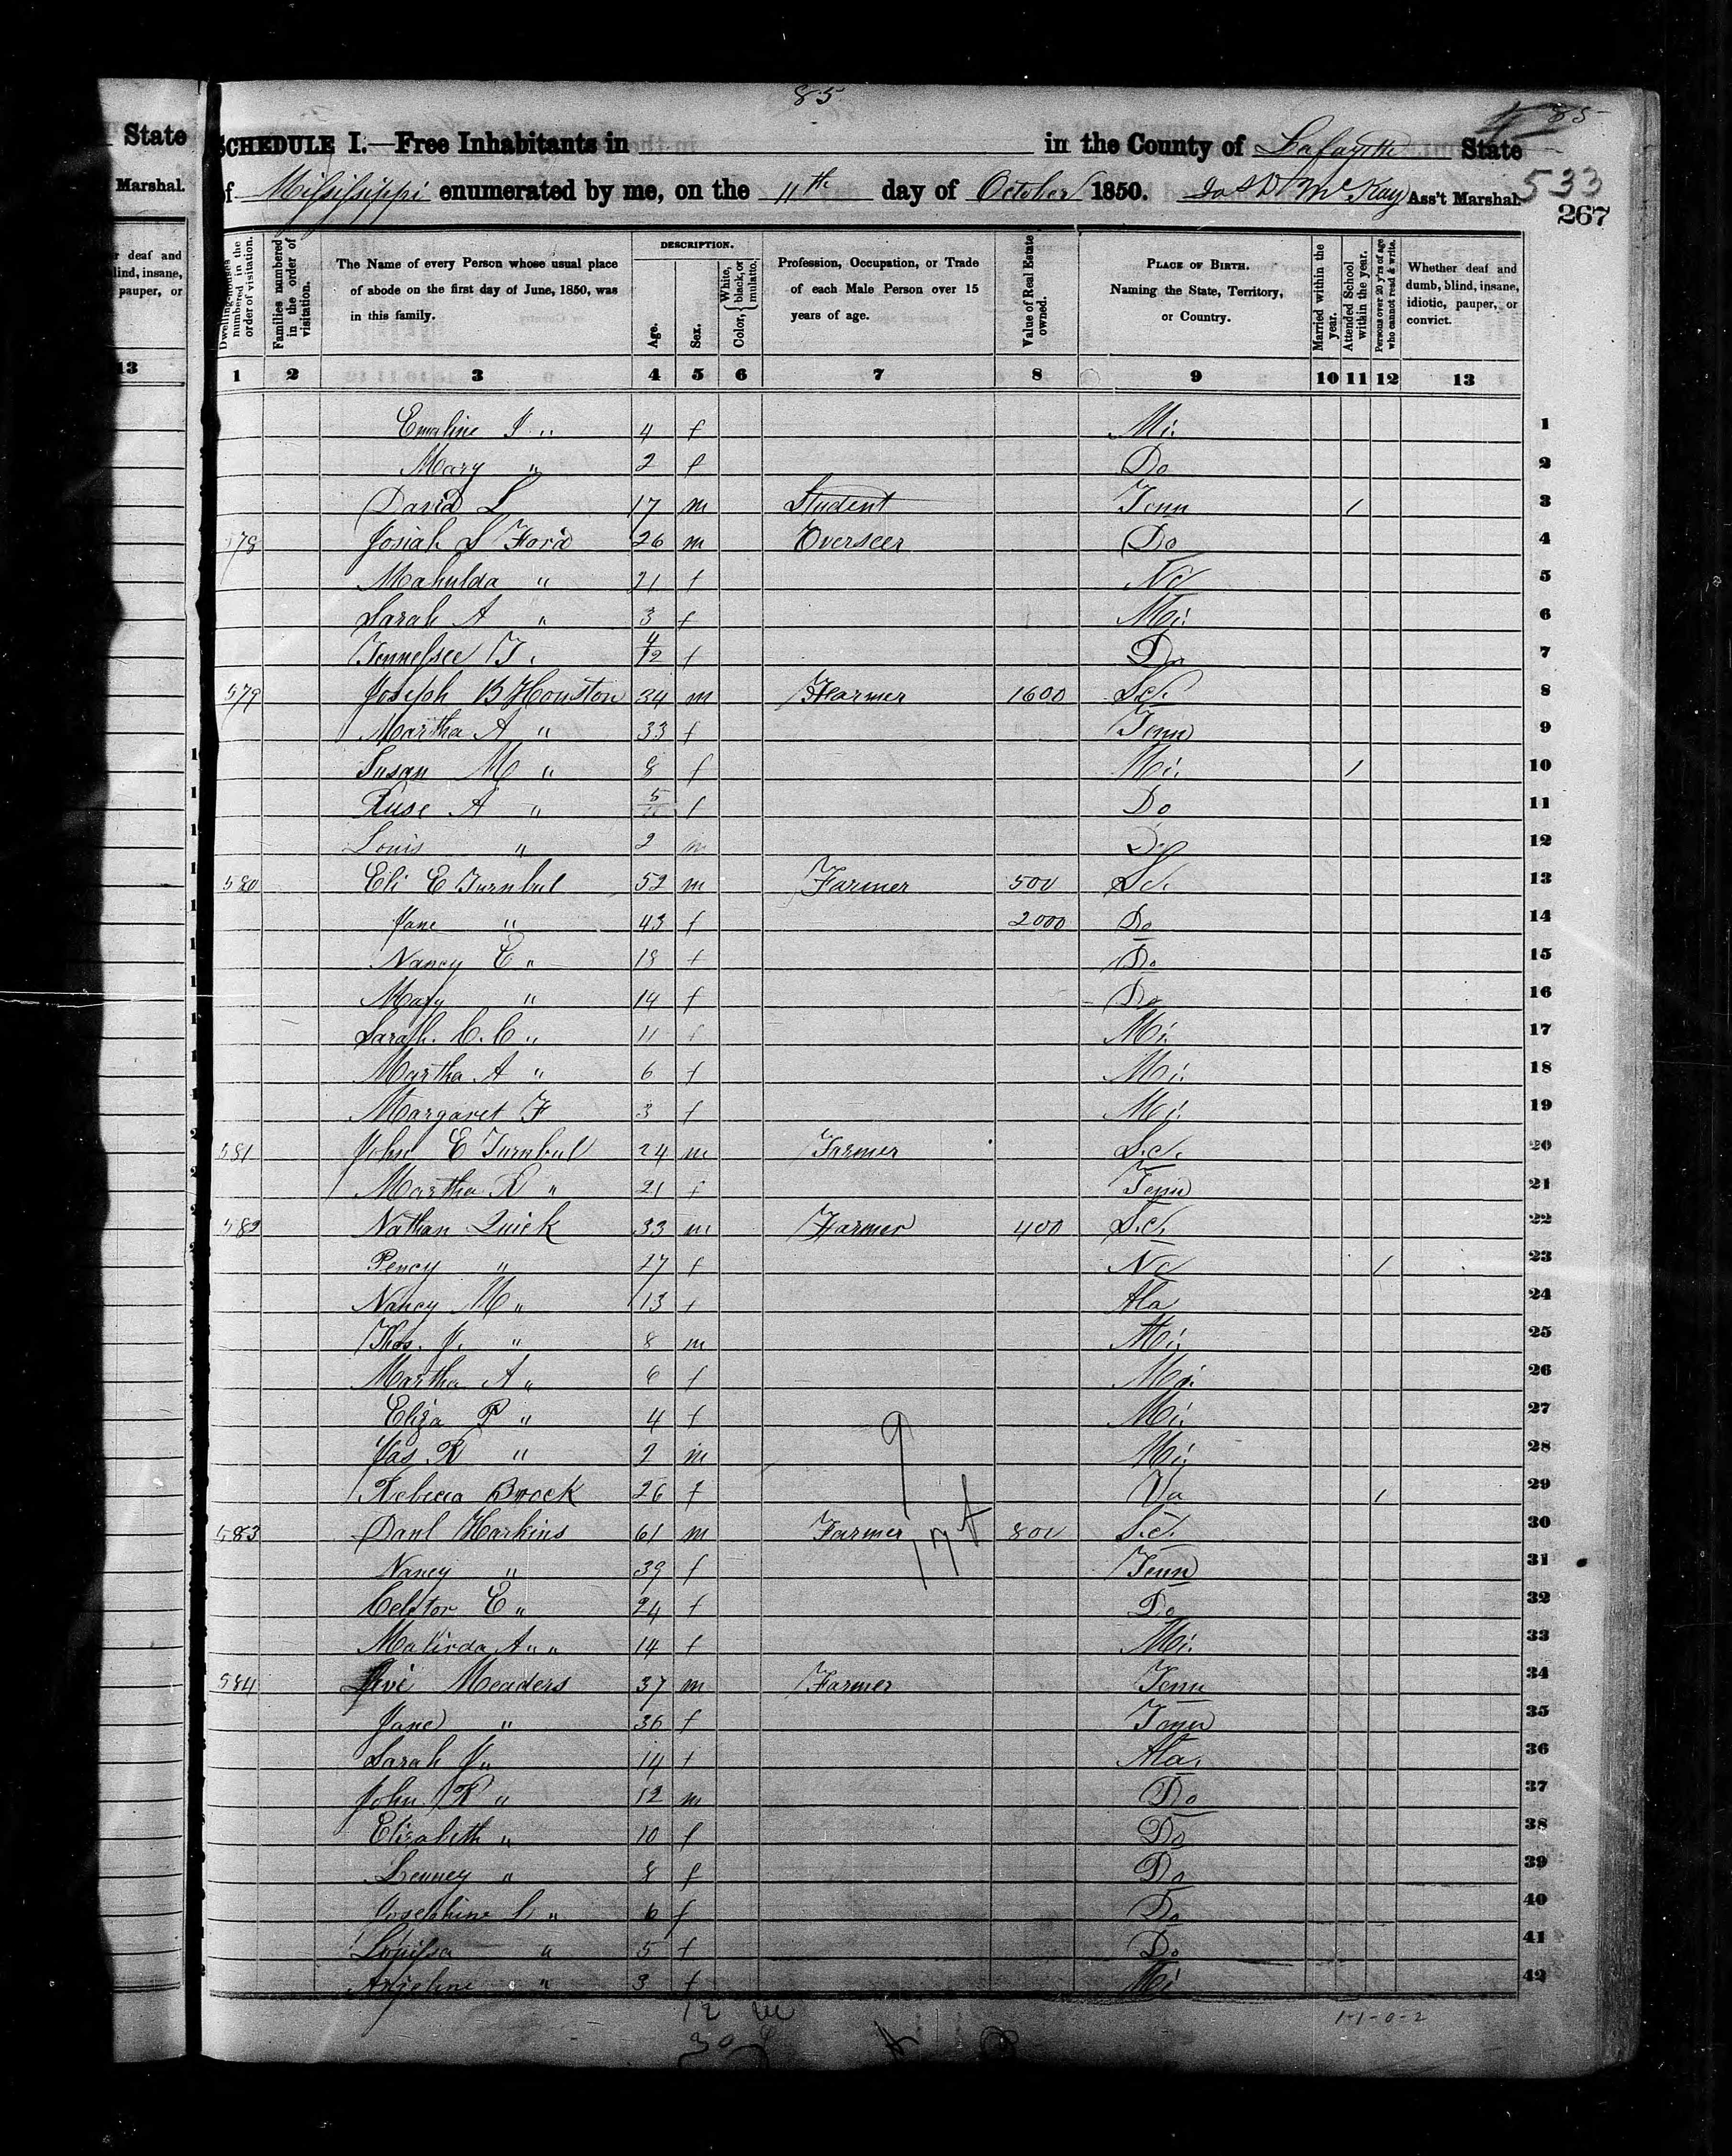 85
85
State
SCHEDULE I.—Free Inhabitants in in the County of Lafayette State
Marshal.
of Mississippi enumerated by me, on the 11th day of October 1850. Jas D McKay Ass't Marshal.
533
267
r deaf and
lind, insane,
pauper, or
Dwelling-houses numbered in the order of visitation.
Families numbered in the order of visitation.
The Name of every Person whose usual place of abode on the first day of June, 1850, was in this family.
DESCRIPTION.
Age.
Sex.
Color, { White, black, or mulatto.
Profession, Occupation, or Trade of each Male Person over 15 years of age.
Value of Real Estate owned.
PLACE OF BIRTH. Naming the State, Territory, or Country.
Married within the year.
Attended School within the year.
Persons over 20 y'rs of age who cannot read & write.
Whether deaf and dumb, blind, insane, idiotic, pauper, or convict.
13 1 2 3 4 5 6 7 8 9 10 11 12 13
Emaline J " 4 f Mi. 1
Mary " 2 f Do 2
David L 17 m Student Tenn / 3
578 Josiah S Ford 26 m Overseer Do 4
Mahulda " 21 f Nc 5
Sarah A " 3 f Mi. 6
Tennessee T. 4/12 f Do 7
579 Joseph B Houston 34 m Farmer 1600 S.c. 8
Martha A " 33 f Tenn 9
Susan M " 8 f Mi. / 10
A " f Do 11
Louis " 2 m Do 12
580 Eli E Turnbul 52 m Farmer 500 S.c. 13
Jane " 43 f 2000 Do 14
Nancy E " 18 f Do 15
Mary " 14 f Do 16
Sarah. C. C " 11 f Mi. 17
Martha A " 6 f Mi. 18
Margaret F 3 f Mi. 19
581 John E Turnbul 24 m Farmer S.c. 20
Martha R " 21 f Tenn 21
582 Nathan Quick 33 m Farmer 400 S.c. 22
Pency " 27 f Nc / 23
Nancy M " 13 f Ala 24
Thos. J. " 8 m Mi. 25
Martha A " 6 f Mi. 26
Eliza P " 4 f Mi. 27
Jas R " 2 m Mi. 28
Rebecca Brock 26 f Va / 29
583 Danl Harkins 61 m Farmer 800 S.c. 30
Nancy " 39 f Tenn 31
E " 24 f Do 32
Malinda A " " 14 f Mi. 33
584 Levi Meaders 37 m Farmer Tenn 34
Jane " 36 f Tenn 35
Sarah J " 14 f Ala. 36
John R " 12 m Do 37
Elizabeth " 10 f Do 38
" 8 f Do 39
Josephine L " 6 f Do 40
Louissa " 5 f Do 41
Anjeline " 3 f Mi 42
12 m
30 f
1-1-0-2